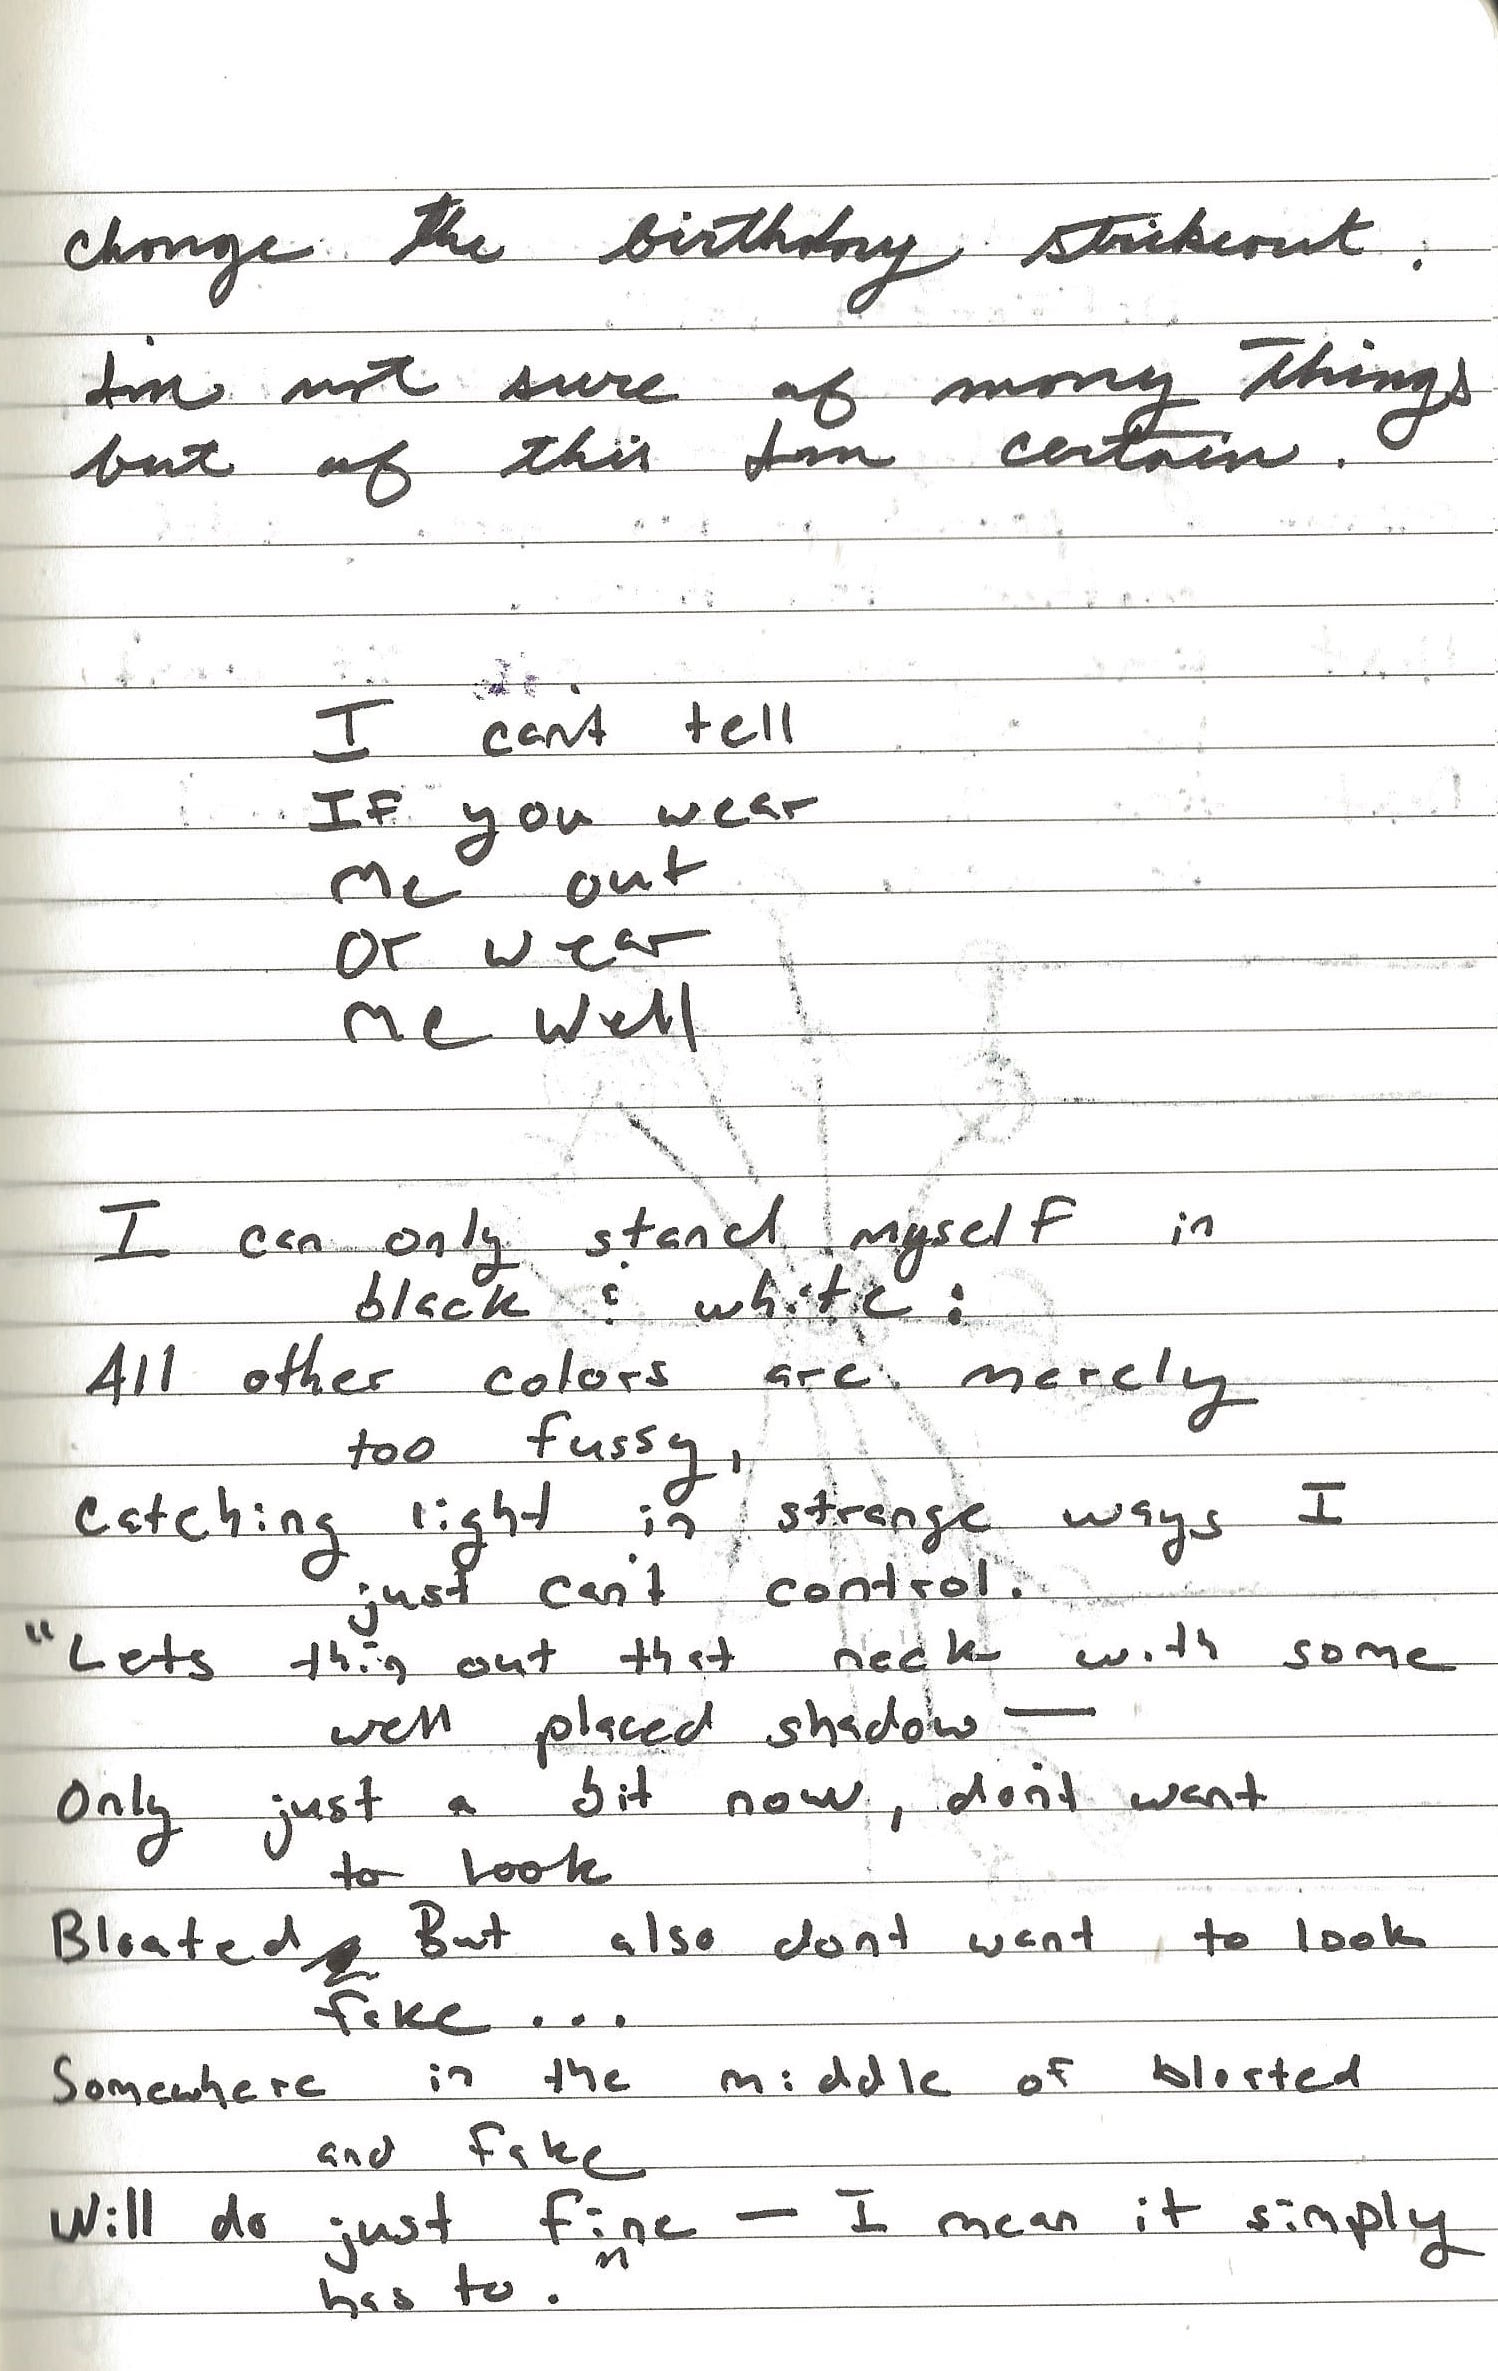 change the birthday strikeout.
I'm not sure of many things
but of this I'm certain.
I can't tell
If you wear
me out
or wear
me well
I can only stand myself in
black & white:
All other colors are merely
too fussy,
catching light in strange ways I
just can't control.
"Lets thin out that neck with some
well placed shadow —
Only just a bit now, don't want
to look
Bloated. But also dont want to look
fake...
Somewhere in the middle of bloated
and fake
Will do just fine — I mean it simply
has to."